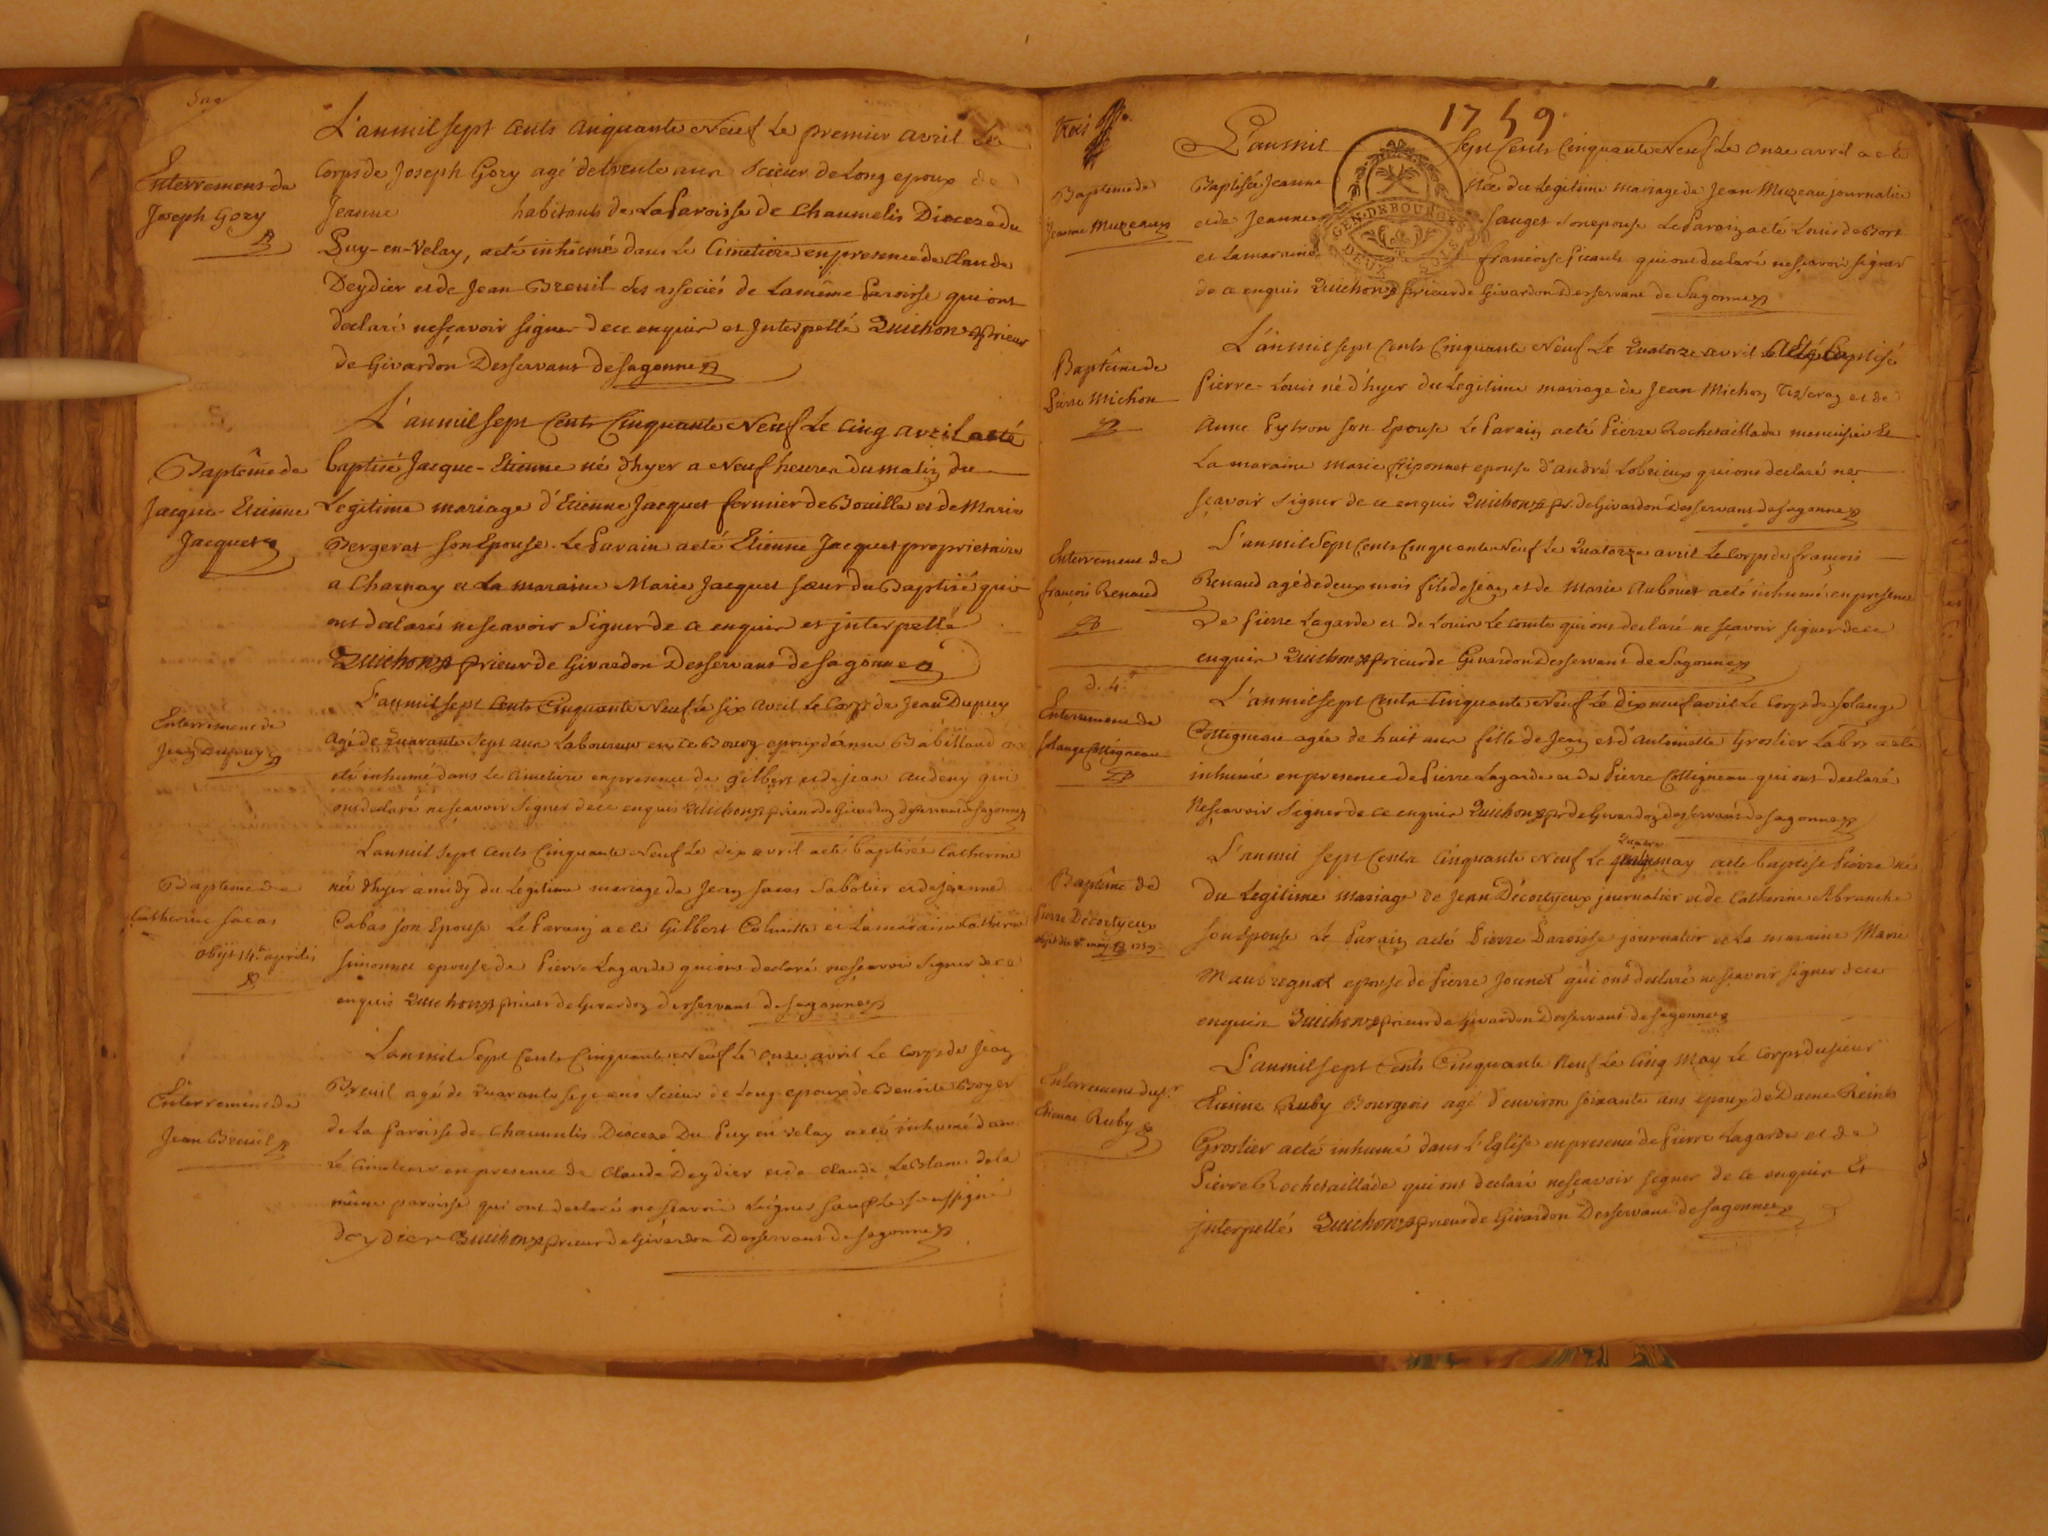 Sag
Enterrement de
Joseph Gory
L'an mil sept cents cinquante neuf le premier avril le
corps de Joseph Gory agé de trente ans scieur de long epoux de
Jeanne habitants de la Paroisse de Chaumelis Dioceze du
Puy-en-Velay, a eté inhumé dans le Cimetiere en presence de Claude
Deydier et de Jean Breuil ses associés de la même Paroisse qui ont
declaré ne sçavoir signer de ce enquis et Interpellé Quichon prieur
de Givardon Desservant de Sagonne
Baptême de
Jacque-Etienne
Jacquet
L'an mil sept Cents Cinquante Neuf le cinq avril a eté
baptisé Jacque-Etienne né d'hyer a neuf heures du matin du
Legitime mariage d'Etienne Jacquet fermier de Bouilla et de Marie
Bergerat son Epouse. Le Parain a eté Etienne Jacquet proprietaire
a Charnay et la maraine Marie Jacquet sœur du Baptisé qui
ont declarés ne scavoir signer de ce enquis et interpellé
Quichon prieur de Givardon Desservant de Sagonne
Enterrement de
Jean Dupuy
L'an mil sept Cents Cinquante Neuf le six avril le Corps de Jean Dupuy
agé de quarante sept ans Laboureur en ce Bourg epoux d'anne Babilland a
eté inhumé dans le Cimetiere en presence de Gilbert et de jean audeny qui
ont declaré ne sçavoir signer de ce enquis Quichon prieur de Givardon desservant de Sagonne
Baptême de
Catherine Sacas
obijt 14 aprilis
L'an mil sept cents Cinquante Neuf le dix avril a eté baptisée Catherine
née d'hyer a midy du Legitime mariage de Jean Sacas Sabotier et de jeanne
Cabas son Epouse Le Parain a eté Gilbert et la maraine Catherine
Simonnet epouse de Pierre Lagarde qui ont declaré ne sçavoir signer de ce
enquis Quichon prieur de Givardon desservant de Sagonne
Enterrement de
Jean Breuil
L'an mil Sept Cents Cinquante Neuf le onze avril le corps de Jean
Breuil agé de quarante sept ans Scieur de Long epoux de Benoite Boyer
de la Paroisse de Chaumelis Diocese Du Puy en velay a eté inhumé dans
le Cimetiere en presence de Claude Deydier et de Claude Leblanc de la
même paroisse qui ont declaré ne scavoir signer sauf le soussigné
deydier Quichon prieur de Givardon Desservant de Sagonne
trois
1759.
Baptême de
Jeanne Muzeau
L'an mil sept Cents Cinquante Neuf le onze avril a eté
Baptisée Jeanne née du Legitime mariage de Jean Muzeau journalier
et de Jeanne Sauget son epouse Le Parain a eté Louis de Bort
et la maraine francoise Picault qui ont declaré ne sçavoir signer
de ce enquis Quichon prieur de Givardon Desservant de Sagonne
GEN. DE BOURGES
DEUX SOLS
Baptême de
Pierre Michon
L'an mil sept Cents Cinquante Neuf le quatorze avril a eté baptisé
Pierre-Louis né d'hyer du Legitime mariage de Jean Michon Tisseran et de
Anne Pytron son Epouse Le Parain a eté Pierre Rochetaillade menuisier Et
la maraine Marie friponnet epouse d'andré Lobrieux qui ont declaré ne
scavoir signer de ce enquis Quichon pr. de Givardon desservant de Sagonne
Enterrement de
françois Renaud
L'an mil Sept Cents Cinquante Neuf le Quatorze avril le Corps de françois
Renaud agé de deux mois fils de Jean et de Marie Aubouet a eté inhumé en presence
De Pierre Lagarde et de Louis Le Comte qui ont declaré ne scavoir signer de ce
enquis Quichon prieur de Givardon Desservant de Sagonne
d. 4.
Enterrement de
Solange Cottigneau
L'an mil sept Cents Cinquante Neuf le dix neuf avril le Corps de Solange
Cottigneau agée de huit ans fille de Jean et d'Antoinette Groslier a eté
inhumé en presence de Pierre Lagarde et de Pierre Cottigneau qui ont declaré
Ne sçavoir signer de ce enquis Quichon pr de Givardon desservant de Sagonne
Baptême de
Pierre Décortyeux
L'an mil sept Cents Cinquante Neuf le quatre may a eté baptisé Pierre né
du Legitime mariage de Jean Décortyeux journalier et de Catherine Abranche
son Epouse Le Parain a eté Pierre Paroisse journalier et la maraine Marie
Mauvregnat epouse de Pierre Jounet qui ont declaré ne scavoir signer de ce
enquis Quichon prieur de Givardon Desservant de Sagonne
Enterrement du Sr
Etienne Ruby
L'an mil sept Cents Cinquante Neuf le Cinq May le corps du sieur
Etienne Ruby Bourgeois agé d'environ soixante ans epoux de Dame Reine
Groslier a eté inhumé dans l'Eglise en presence de Pierre Lagarde et de
Pierre Rochetaillade qui ont declaré ne sçavoir signer de ce enquis Et
interpellé Quichon prieur de Givardon Desservant de Sagonne